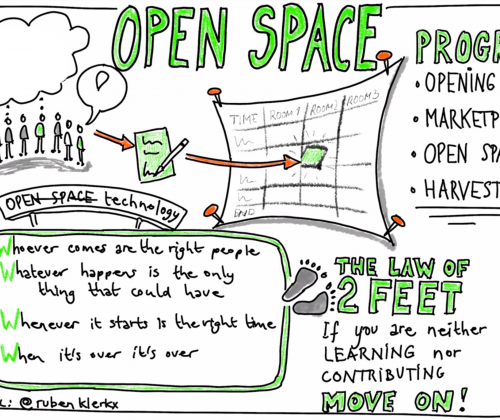 OPEN SPACE
PROGR
• OPENING
• MARKETP
• OPEN SPA
• HARVEST
TIME ROOM 1 ROOM 2 ROOM 3
END
OPEN SPACE technology
Whoever comes are the right people
Whatever happens is the only
thing that could have
Whenever it starts is the right time
When it's over it's over
THE LAW OF
2 FEET
If you are neither
LEARNING nor
CONTRIBUTING
MOVE ON!
: @rubenklerkx